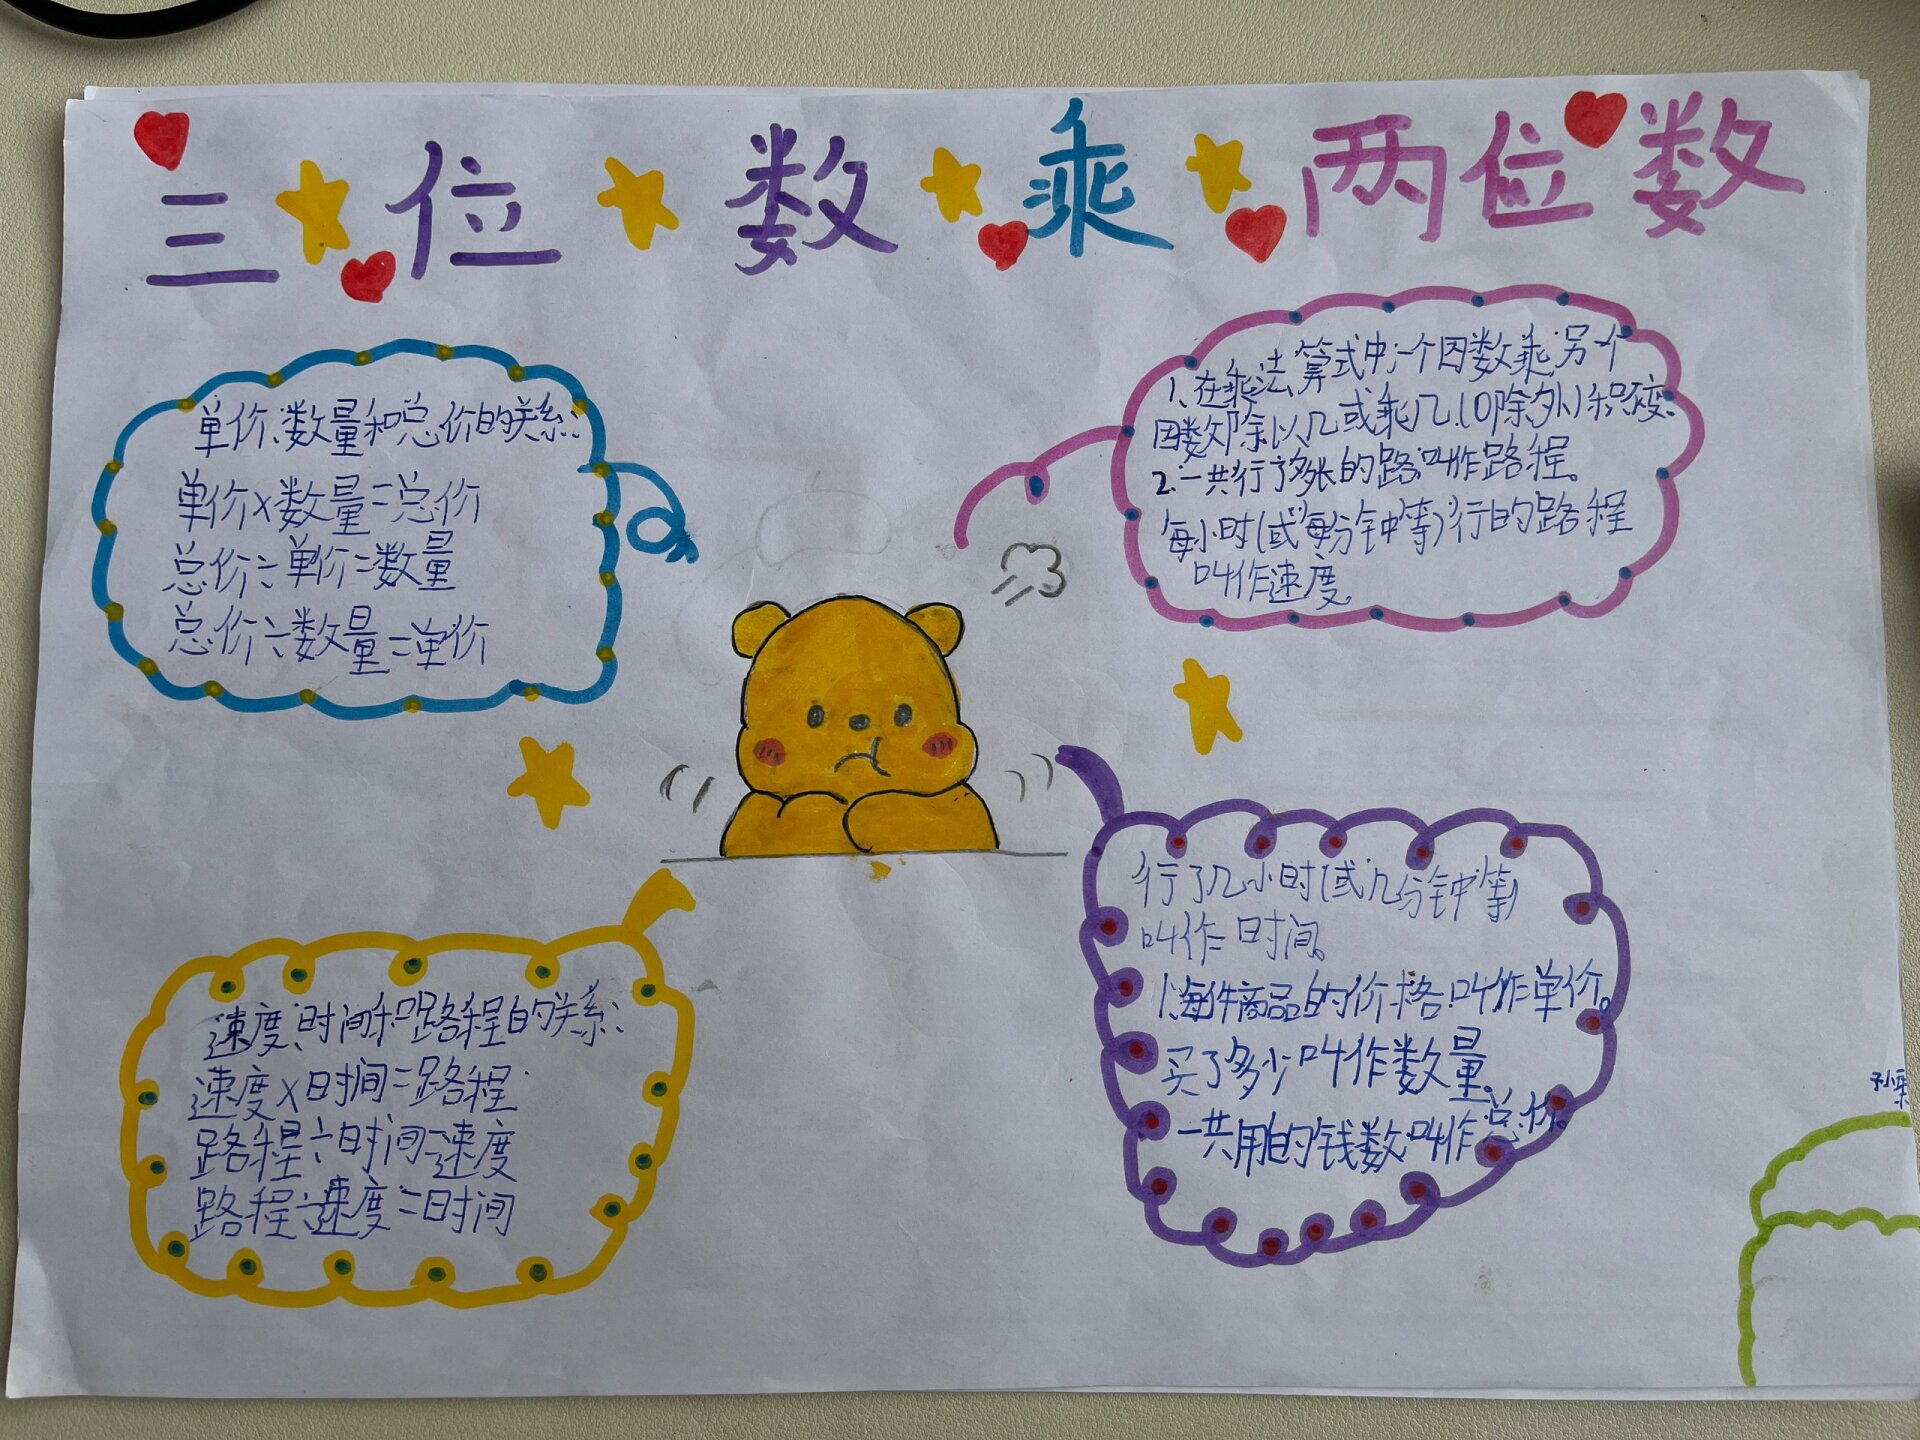 三位数乘两位数
单价、数量和总价的关系:
单价×数量=总价
总价÷单价=数量
总价÷数量=单价
1、在乘法算式中,一个因数乘,另一个
因数除以几或乘几.(0除外)积不变.
2.一共行了多长的路,叫作路程。
每小时(或每分钟等)行的路程
叫作速度.
速度、时间和路程的关系:
速度×时间=路程
路程÷时间=速度
路程÷速度=时间
行了几小时(或几分钟等)
叫作时间。
1.每件商品的价格,叫作单价。
买了多少叫作数量。
一共用的钱数,叫作总价。